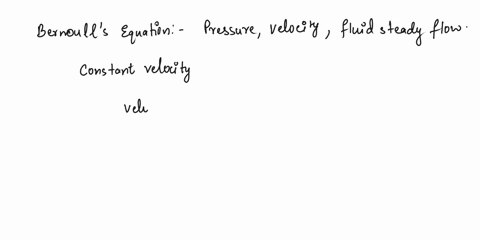 Bernoull's Equation:- Pressure, velocity, fluid steady flow.
Constant velocity
vele